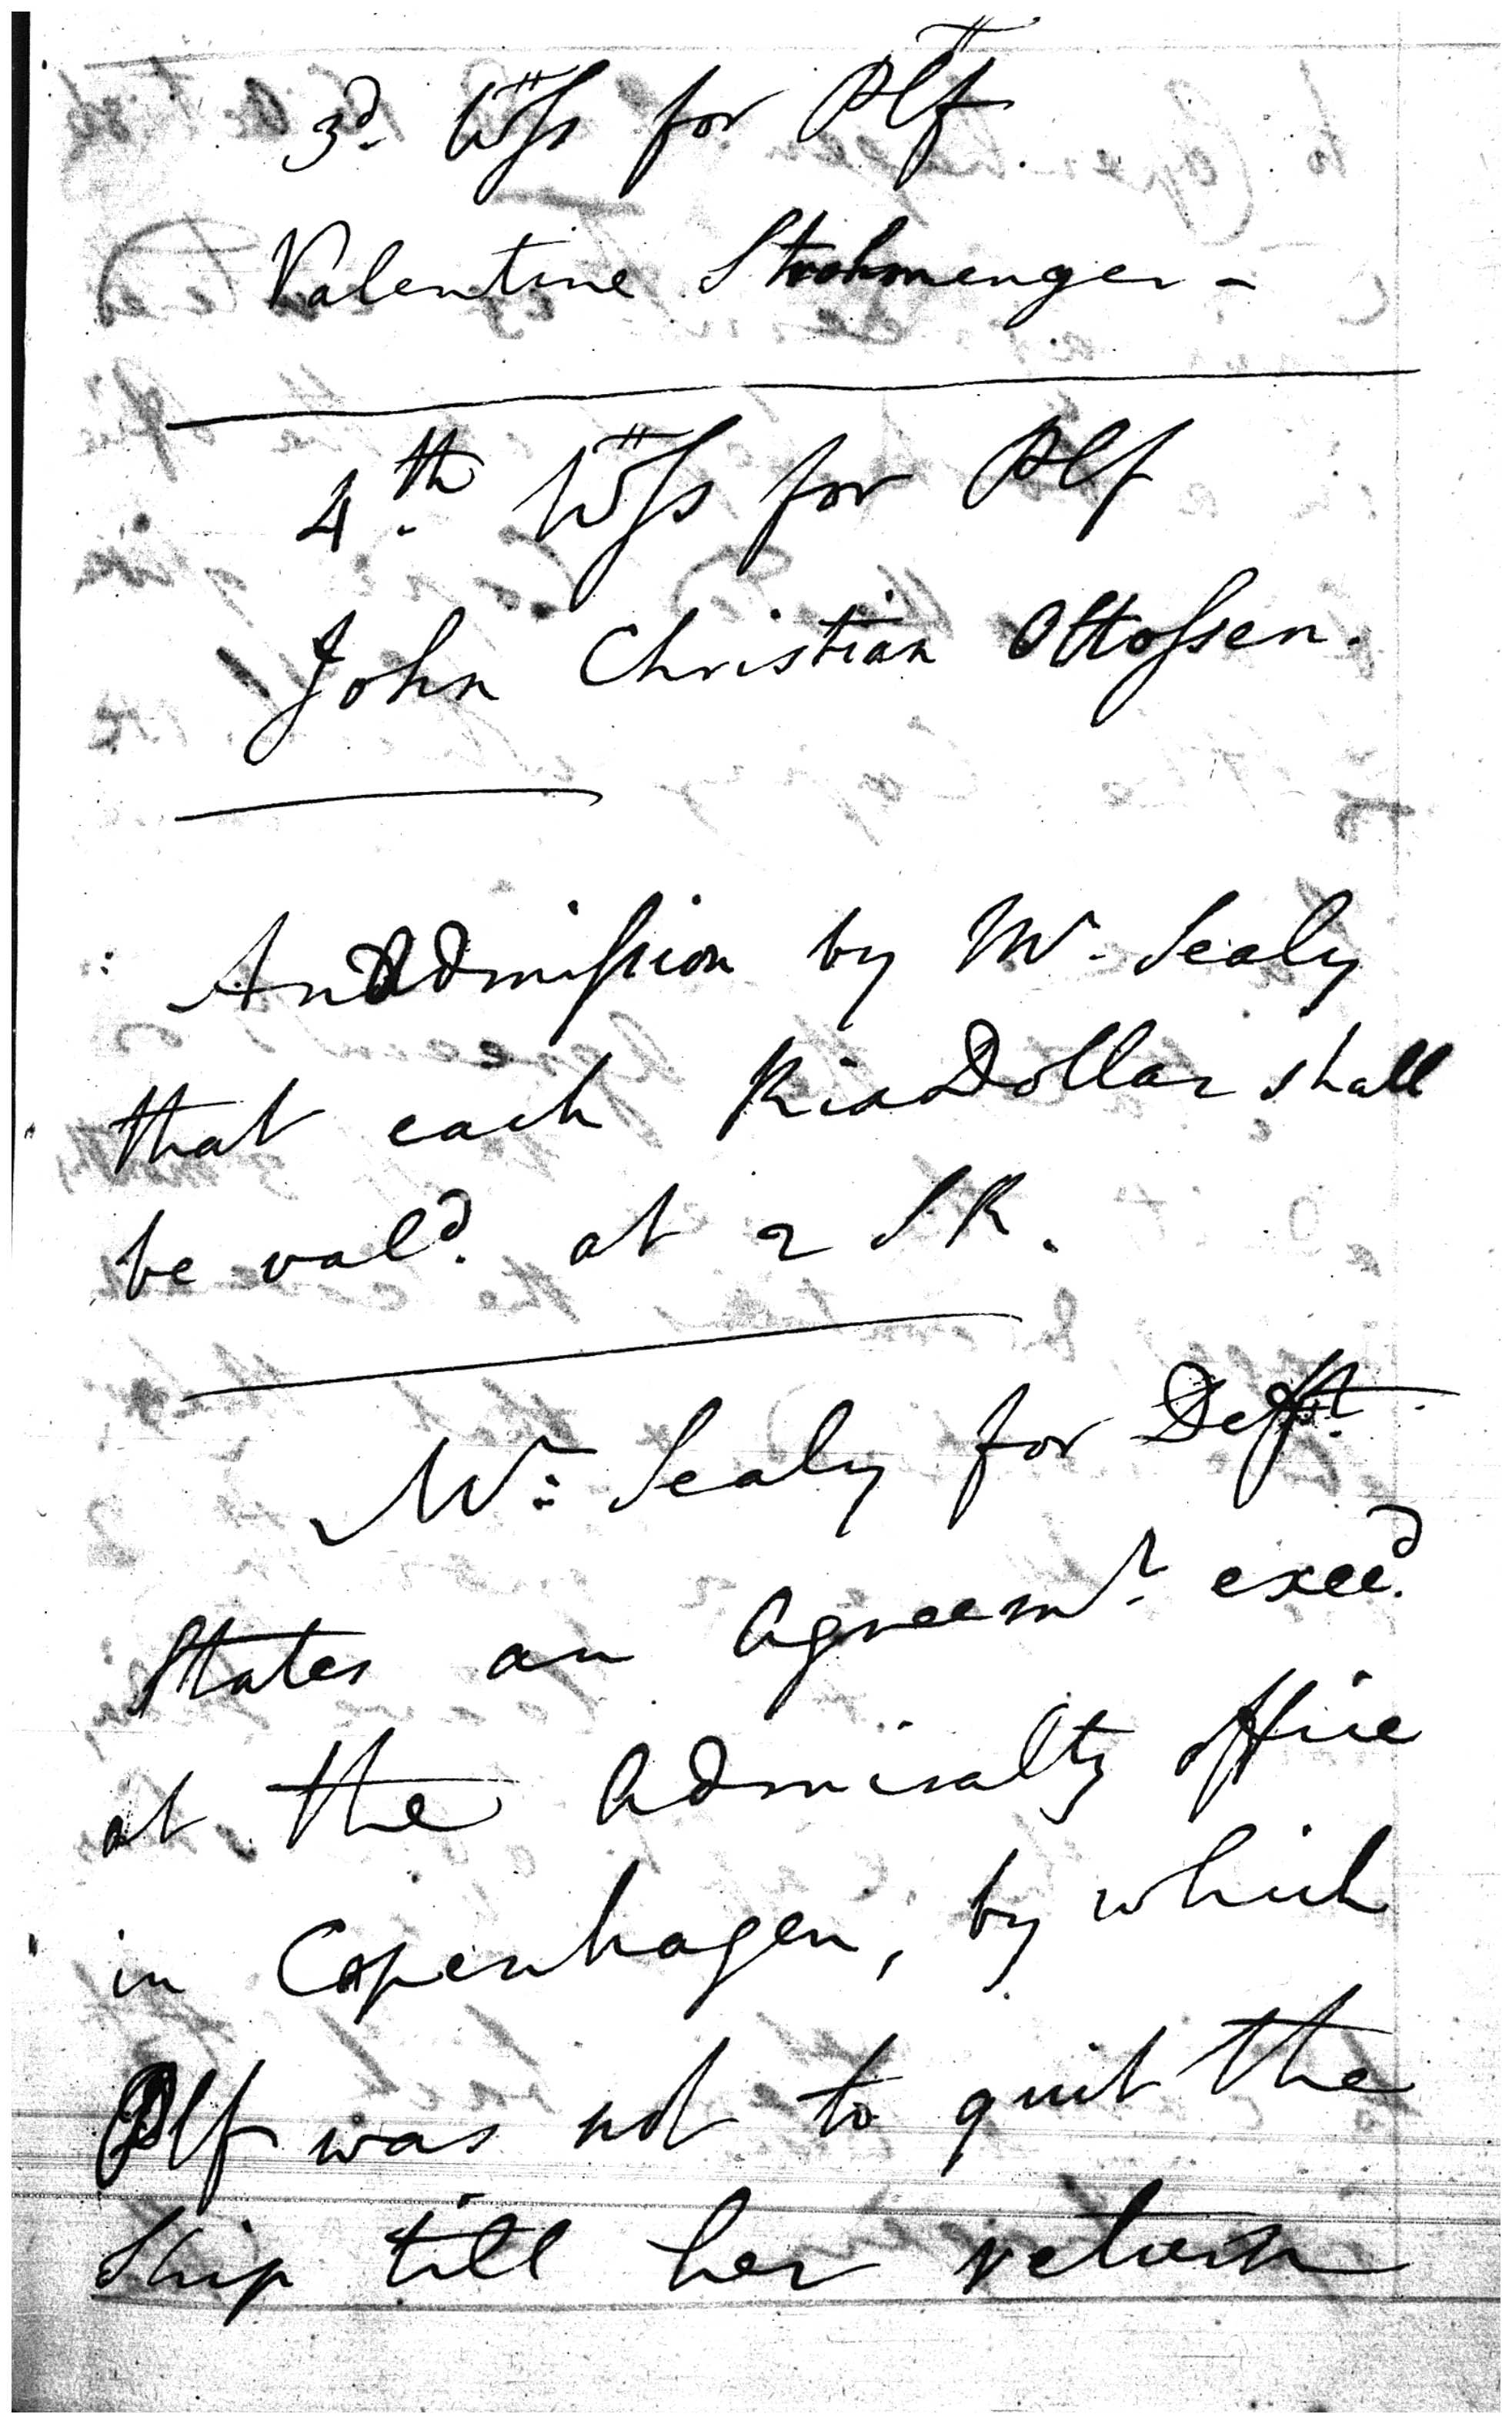 3d. Wss for Plf
Valentine Strohmenger -
4th. Wss for Plf
John Christian Ottossen.
An Admission by Mr. Sealy
that each Rix Dollar shall
be vald. at 2 SR.
Mr: Sealy for Defft.
States an Agreemt. exeed.
at the Admiralty office
in Copenhagen, by which
Plf was not to quit the
Ship till her return